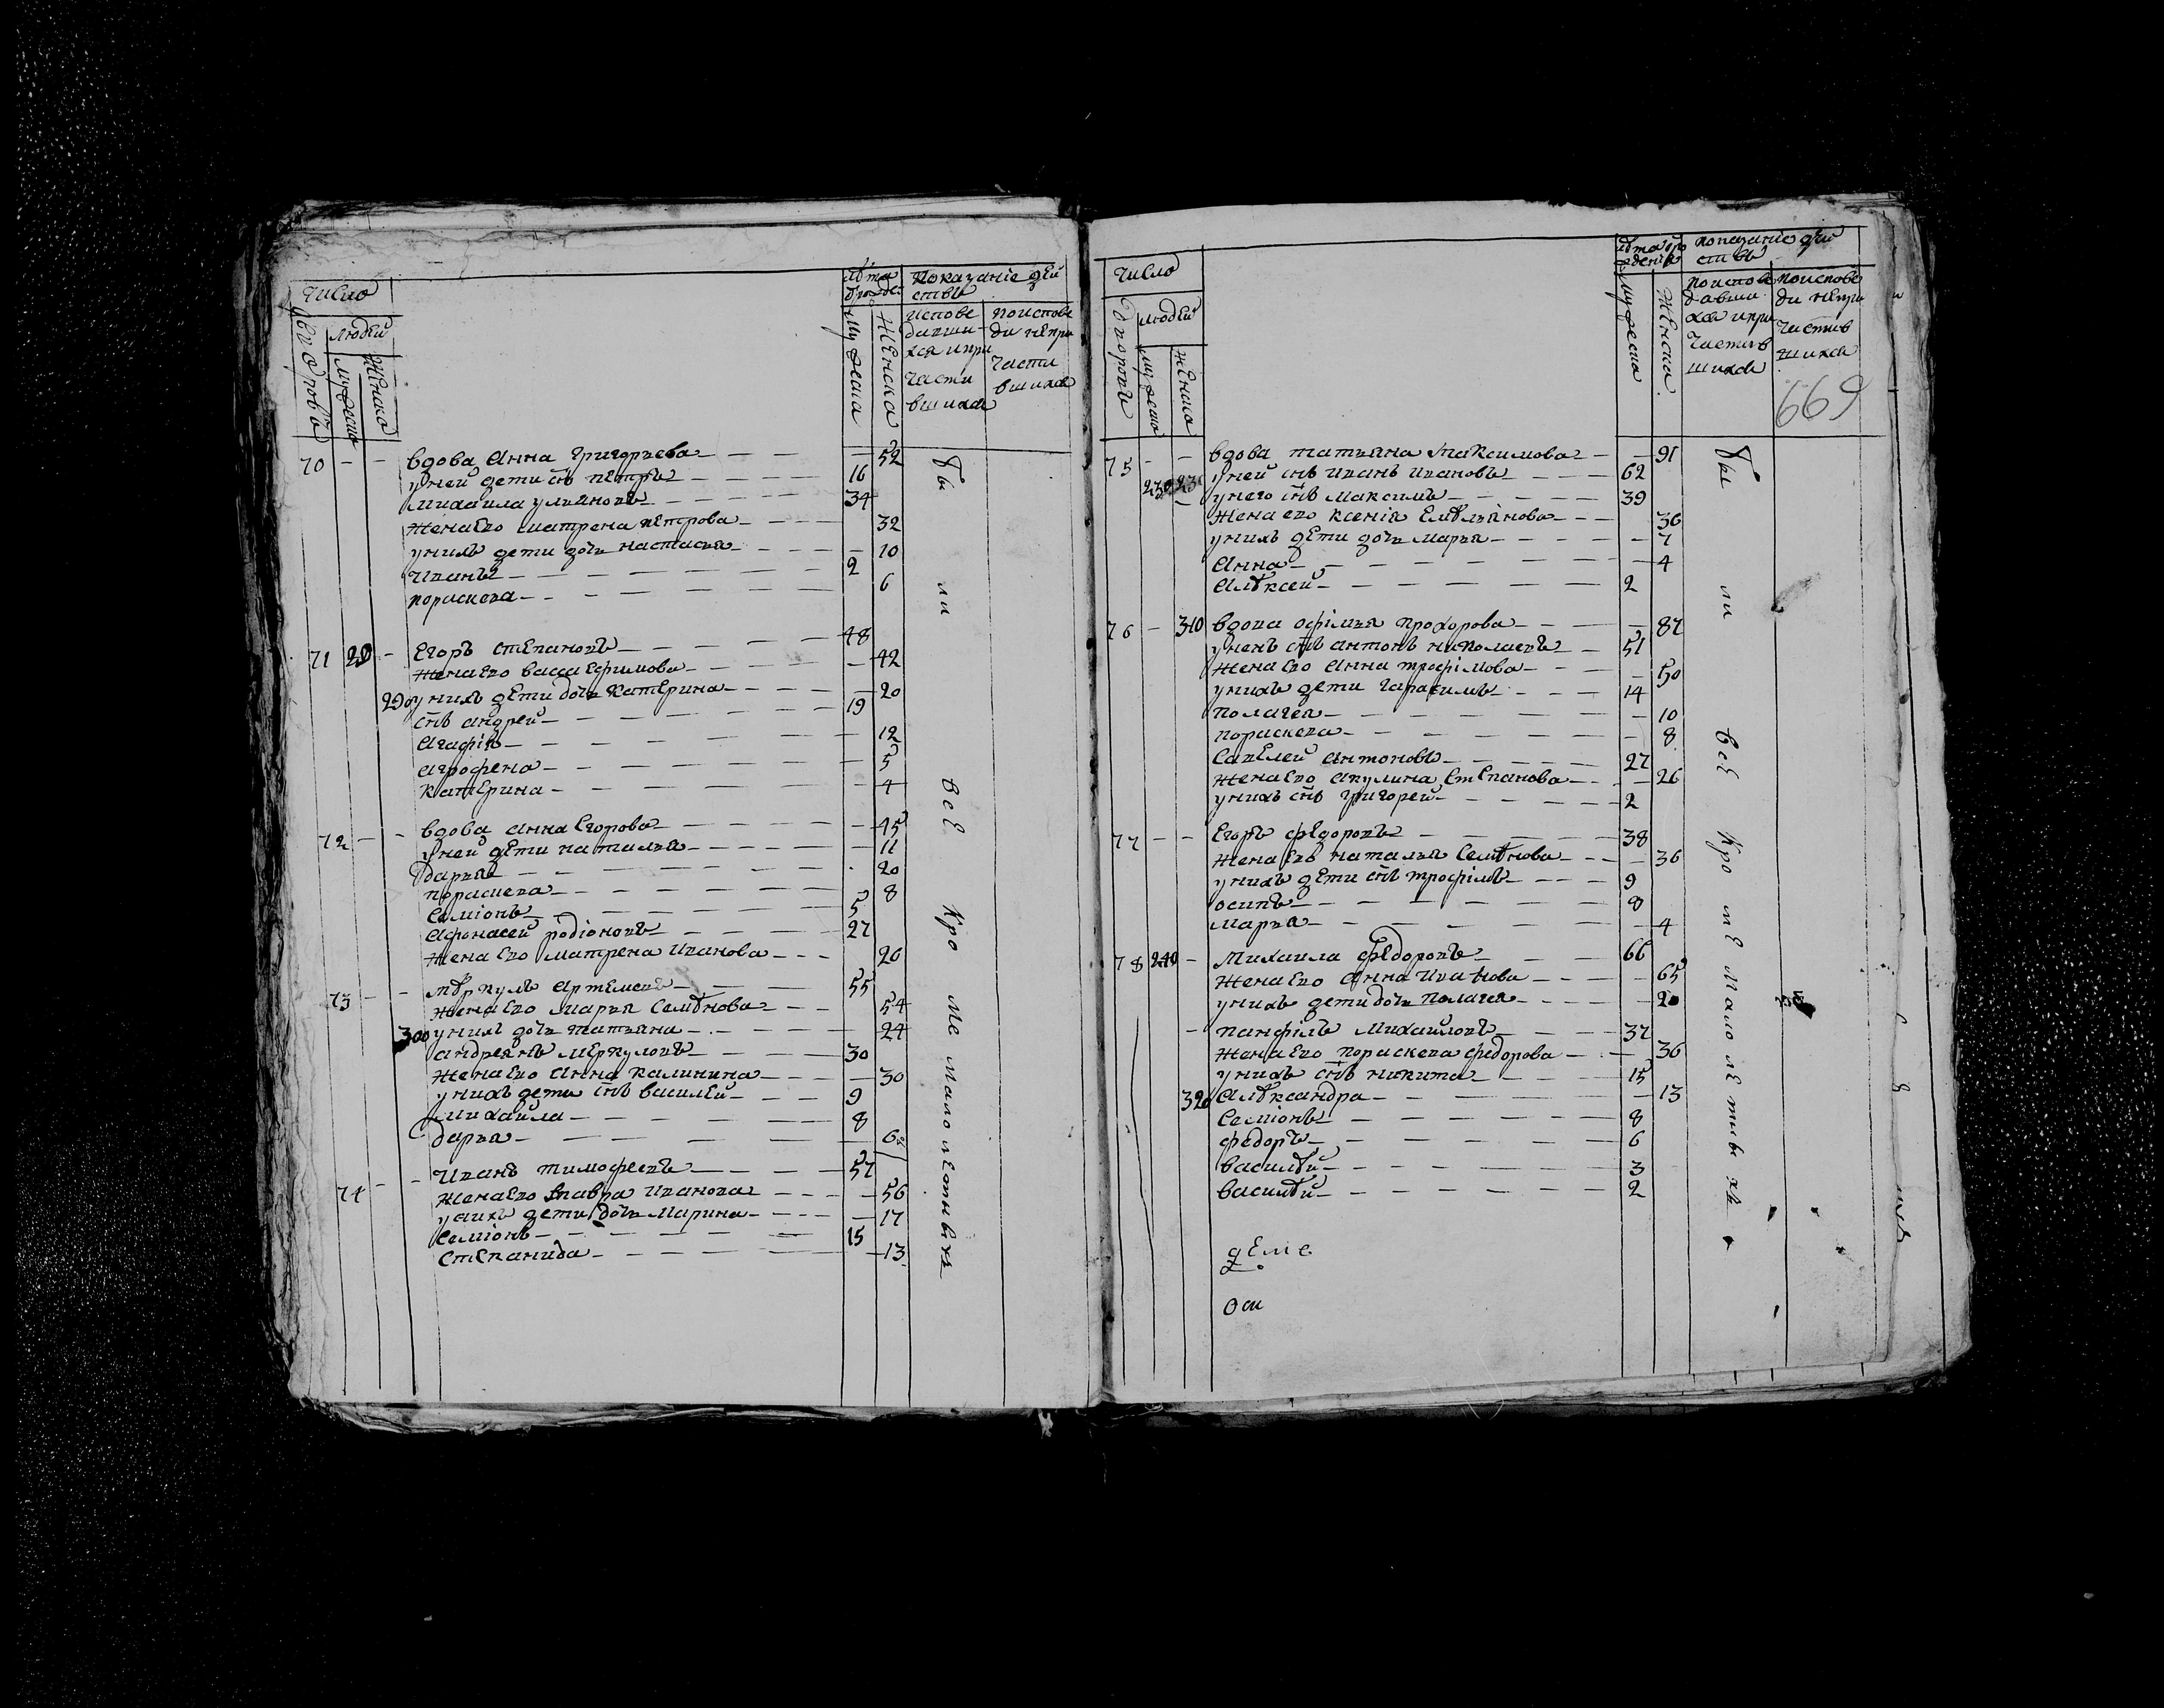 Число
Дворовъ
Людей
Мужеска
Женска
лѣта
Мужеска
Женска
Показаніе дѣй
ствъ
испове
давши
хся и при
части
вшихся
по испове
ди не при
части
вшихся
70 - - вдова Анна Григорьева - 52
у ней дети снъ Петръ - 16
Михаила Ульяновъ - 34
жена ево Матрена Петрова - 32
у нихъ дети дочь Настасья - 10
Иванъ - 2
Пораскева - 6
71 - Егоръ Степановъ - 48
жена ево Васса Ефимова - 42
290 у нихъ дети дочь Катерина - 20
снъ Андрей - 19
Агафія - 12
Агрофена - 5
Катерина - 4
72 - - вдова Анна Егорова - 45
у ней дети Наталья - 11
Дарья - 20
Пораскева - 8
Семіонъ - 5
Афонасей Родіоновъ - 27
жена ево Матрена Иванова - 26
73 - - Мѣркулъ Артемьевъ - 55
жена ево Марья Семѣнова - 54
300 у нихъ дочь Татьяна - 24
Андреянъ Меркуловъ - 30
жена ево Анна Калинина - 30
у нихъ дети снъ Василей - 9
Михайла - 8
Дарья - 6
74 - - Иванъ Тимофеевъ - 57
жена ево Мавра Иванова - 56
у нихъ дети дочь Марина - 17
Семіонъ - 15
Степанида - 13
Бы
ли
все
Кро
ме
малолетныхъ
Число
Дворовъ
Людей
Мужеска
Женска
лѣта ро
жденія
Мужеска
Женска
показаніе дѣй
ствъ
по испове
ди не при
частив
шихся
669
75 - - вдова Татьяна Максимова - 91
230 у ней снъ Иванъ Ивановъ - 62
у него снъ Максимъ - 39
жена ево Ксенія Емѣльянова - 36
у нихъ дети дочь Марья - 7
Анна - 4
Алѣксей - 2
76 - 310 вдова Офімья Прохорова - 87
у ней снъ Антонъ Николаевъ - 51
жена ево Анна Трофімова - 50
у нихъ дети Гарасимъ - 14
Полагея - 10
Пораскева - 8
Савелей Антоновъ - 27
жена ево Акулина Степанова - 26
у нихъ снъ Григорей - 2
77 - - Егоръ Федоровъ - 38
жена ево Наталья Семѣнова - 36
у нихъ дети снъ Трофімъ - 9
Осипъ - 8
Марья - 4
78 240 - Михаила Федоровъ - 66
жена ево Анна Иванова - 65
у нихъ дети дочь Полагея - 20
- Панфілъ Михаиловъ - 37
жена ево Пораскева Федорова - 36
у нихъ снъ Никита - 15
320 Алѣксандра - 13
Семіонъ - 8
Федоръ - 6
Василѣй - 3
Василѣй - 2
Бы
ли
все
Кро
ме
малолетныхъ